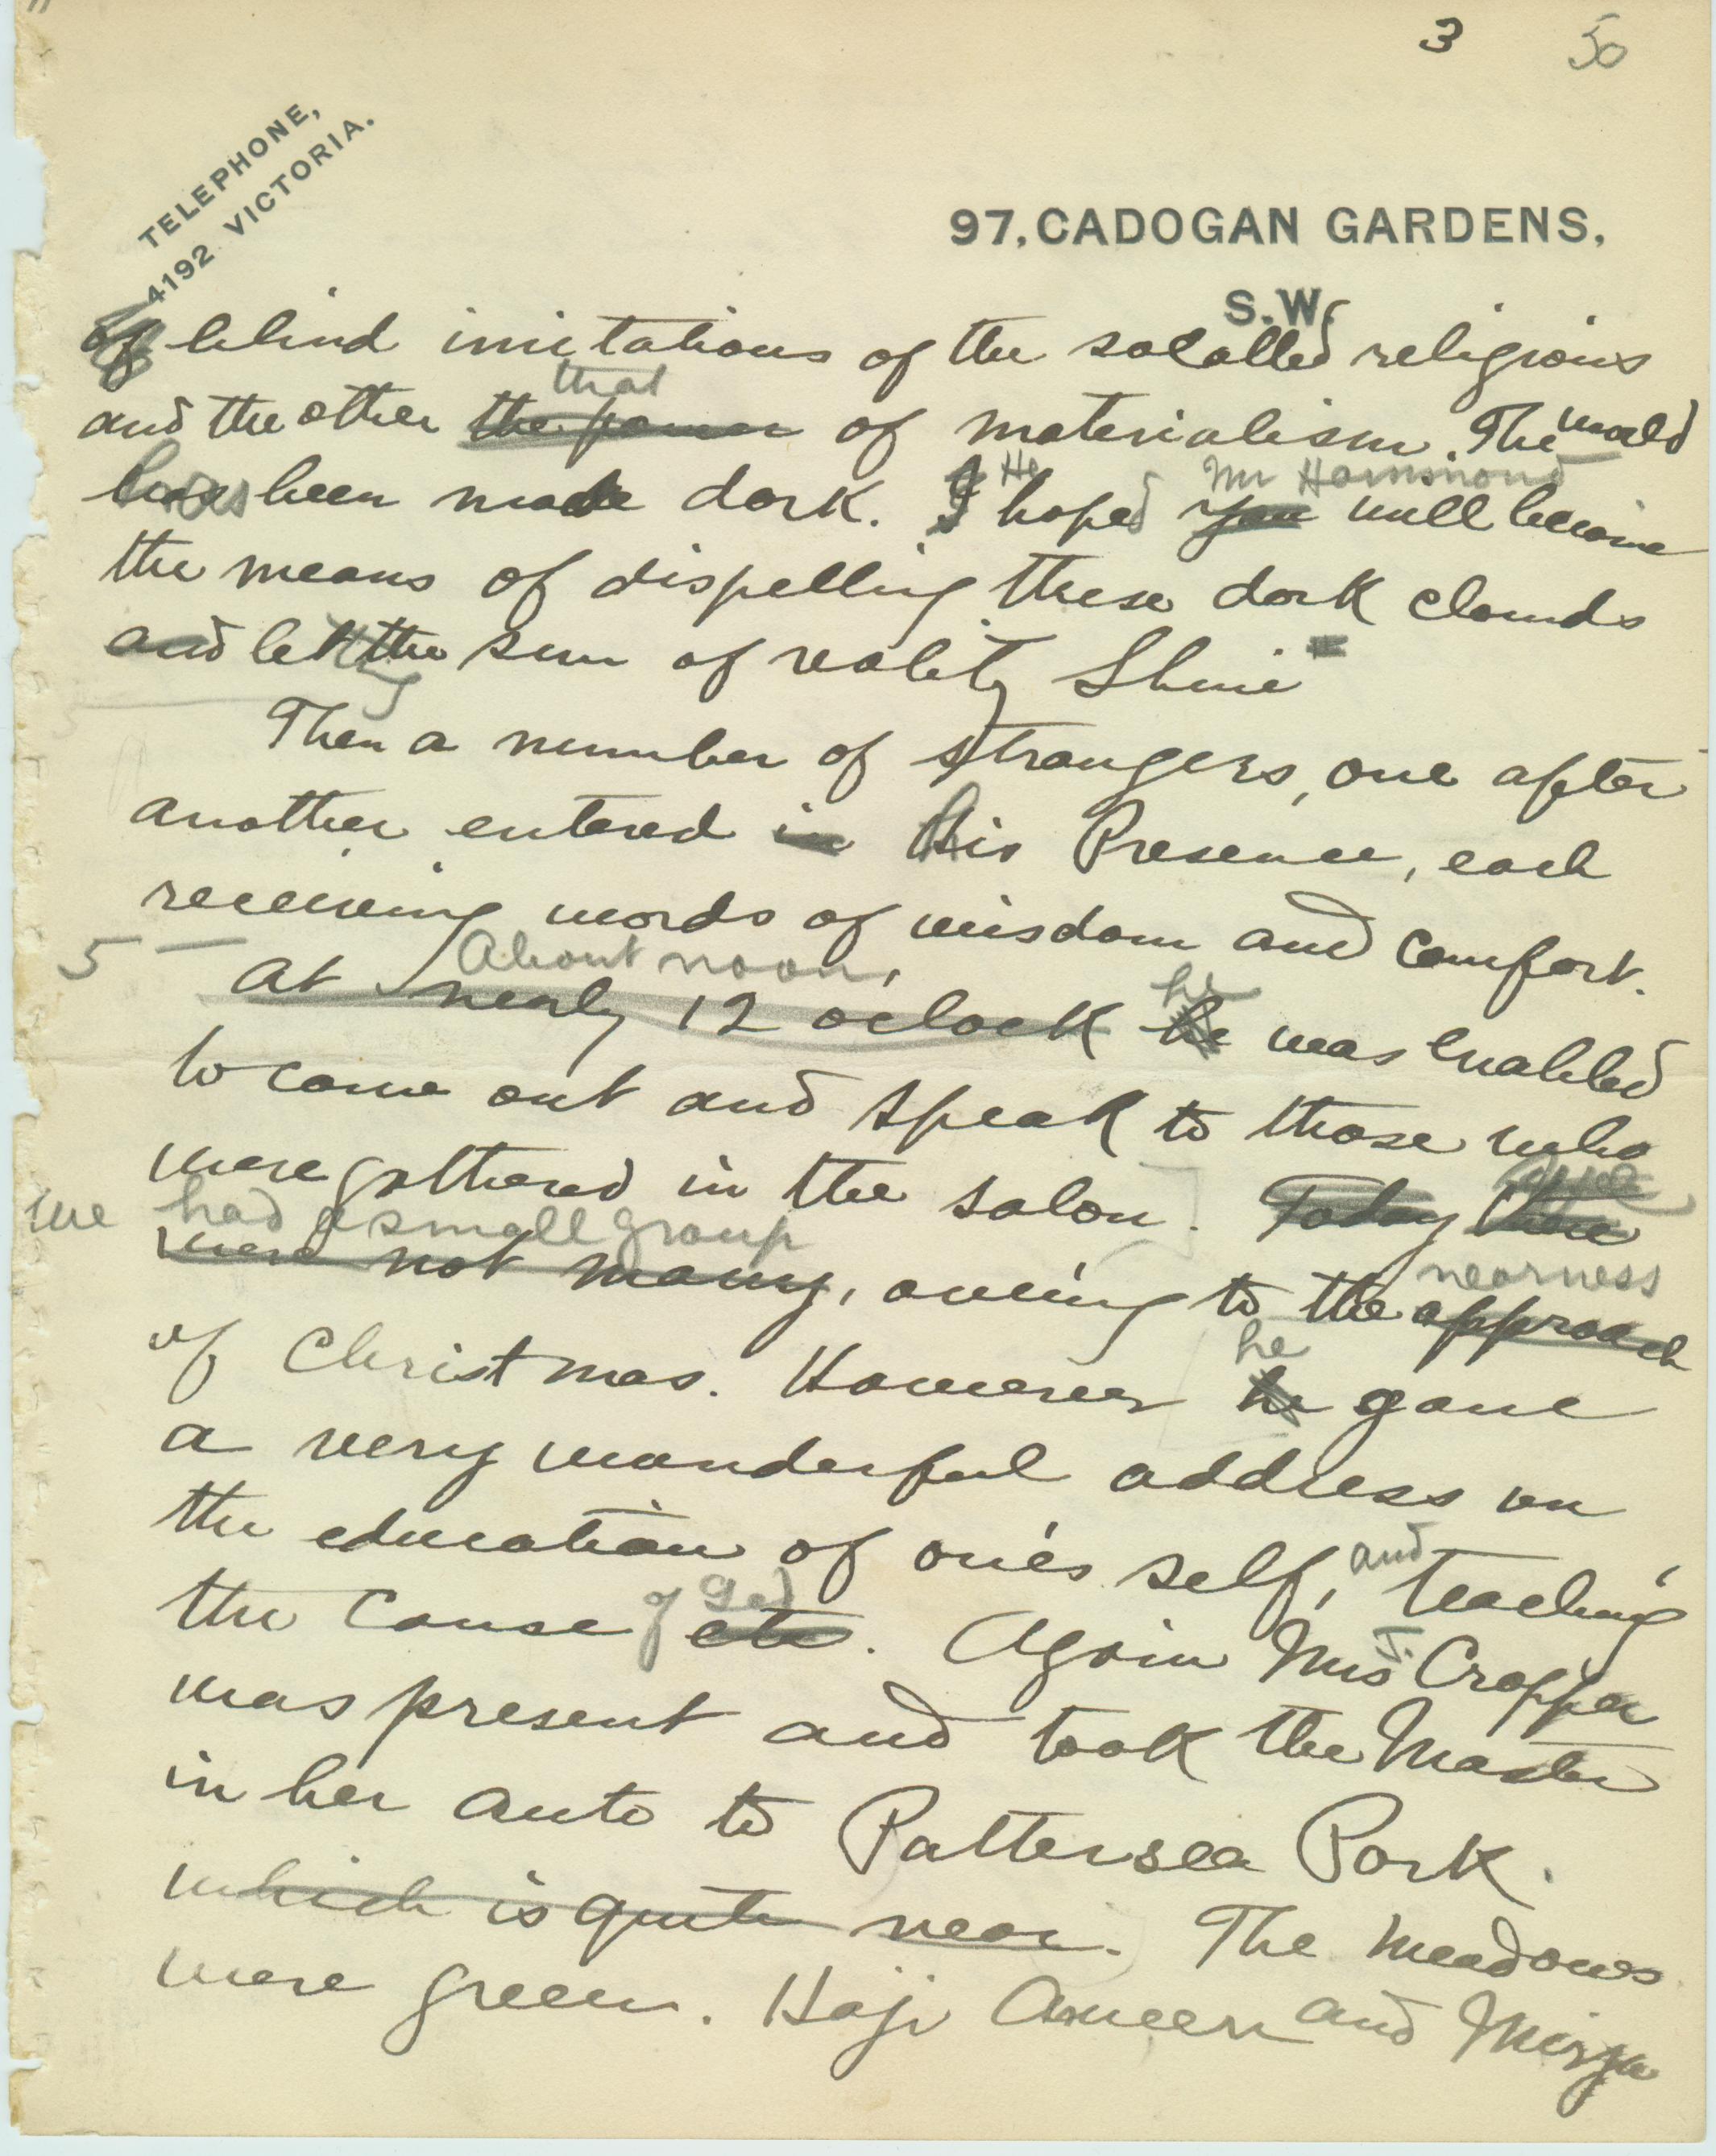 3 50
TELEPHONE,
4192 VICTORIA.
97, CADOGAN GARDENS,
S.W.
of blind imitations of the socalled religions
that
and the other the power of materialism. The world
He Mr Hammond
has been made dark. I hoped you will become
the means of dispelling these dark clouds
and letting the sun of reality Shine
Then a number of strangers, one after
another entered in his Presence, each
receiving words of wisdom and comfort.
5 — About noon, he
at nearly 12 o'clock he was enabled
to come out and speak to those who
were gathered in the salon. Today there
we had a small group
were not many, owing to the approach
nearness
of Christmas. However he gave
he
a very wonderful address on
the education of one's self, and teaching
the Cause of God etc. Again Mrs T. Cropper
was present and took the Master
in her auto to Battersea Park.
which is quite near. The meadows
were green. Haji Ameen and Mirza